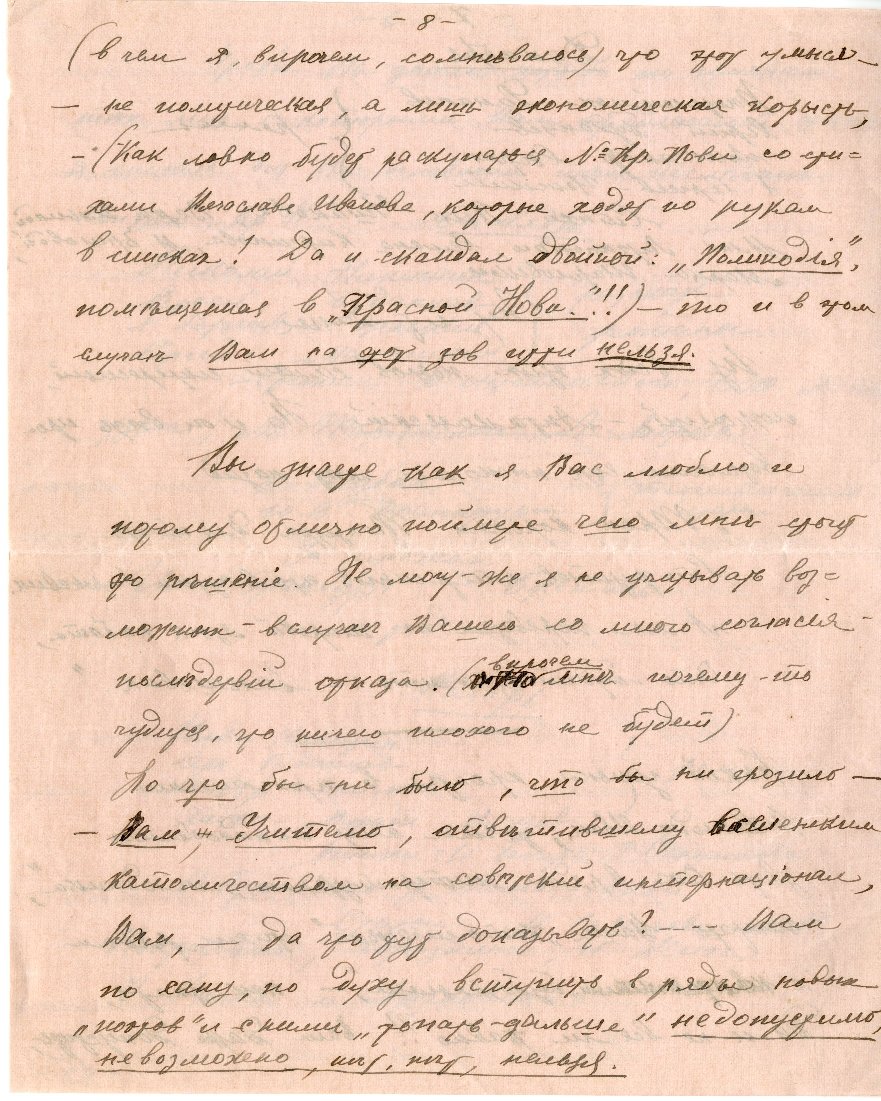 - 8 -
(в чем я, впрочем, сомнѣваюсь) что этот умысл -
- не политическая, а лишь экономическая корысть,
- (Как ловко будет раскупаться № Кр. Нови со сти=
хами Вячеслава Иванова, которые ходят по рукам
в списках! Да и скандал двойной: „Палинодія",
помѣщенная в „Красной Нови."!!) - то и в этом
случаѣ Вам на этот зов итти нельзя.
Вы знаете как я Вас люблю и
потому отлично поймете чего мнѣ стоит
это рѣшеніе. Не могу-же я не учитывать воз=
можных - в случаѣ Вашего со мною согласія -
послѣдствій отказа. (впрочем мнѣ почему-то
чудится, что ничего плохого не будет)
Но что бы-ни было, что бы ни грозило -
- Вам, Учителю, отвѣтившему вселенским
католичеством на совѣтскій интернаціонал,
Вам, — да что тут доказывать? ---- Вам
по сану, по духу вступить в ряды новых
„поэтов" и с ними „топать дальше" недопустимо,
невозможно, нѣт, нѣт, нельзя.